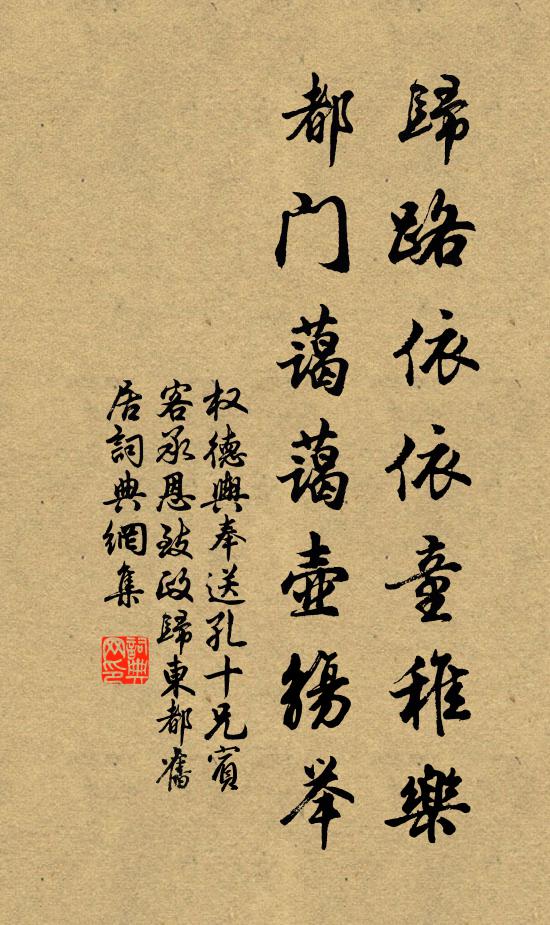 歸路依依童稚樂
都门藹藹壺觴举
权德輿奉送孔十兄賓
客承恩致政歸東都舊
居詞典網集
詞典网印